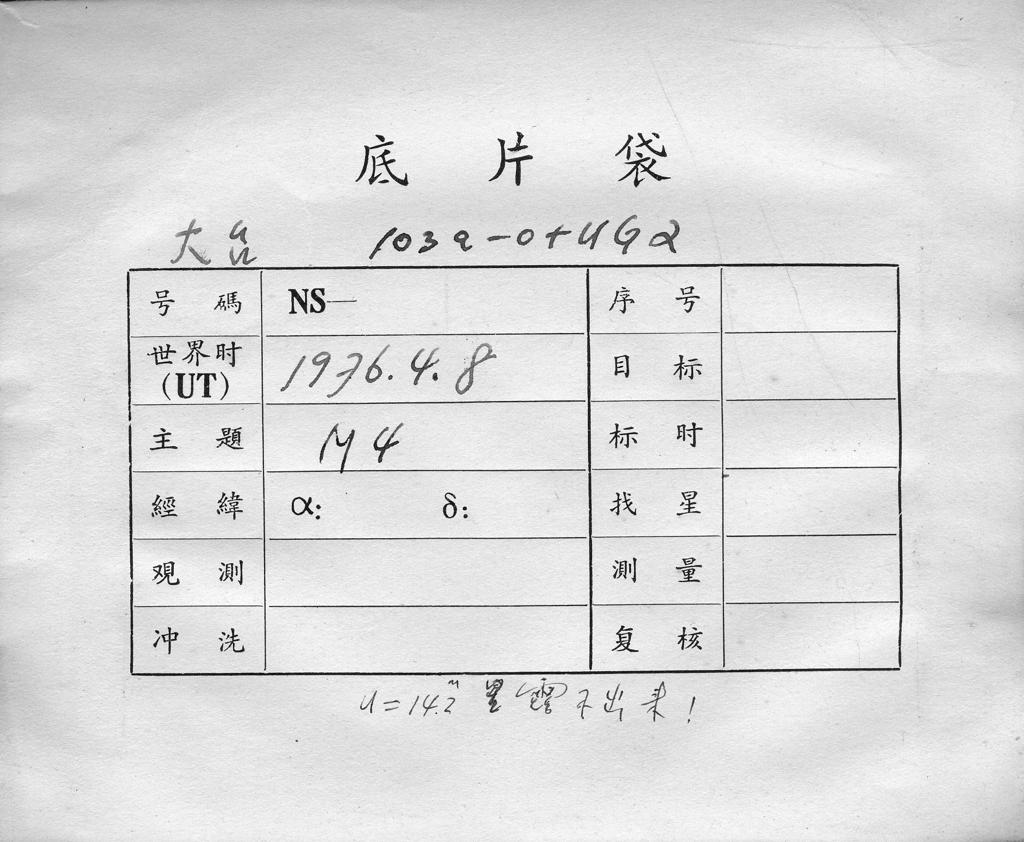 底片袋
大台 103a-O+UG2
号碼 NS— 序号
世界时(UT) 1976.4.8 目标
主題 M4 标时
經緯 α: δ: 找星
观測 測量
冲洗 复核
U=14.2ᵐ 星 不出来!